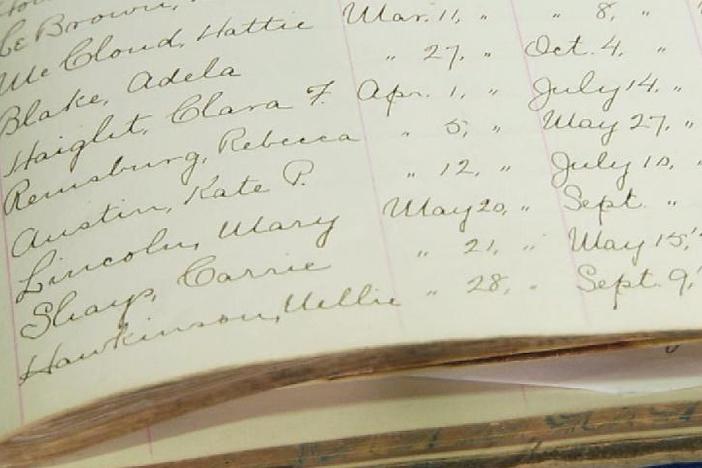 LeBrown,
McCloud, Hattie Mar. 11, " " 8, "
Blake, Adela " 27, " Oct. 4, "
Haight, Clara F. Apr. 1, " July 14, "
Remsburg, Rebecca " 5, " May 27, "
Austin, Kate P. " 12, " July 10, "
Lincoln, Mary May 20, " Sept. "
Sharp, Carrie " 21, " May 15, "
Hawkinson, Nellie " 28, " Sept. 9, "